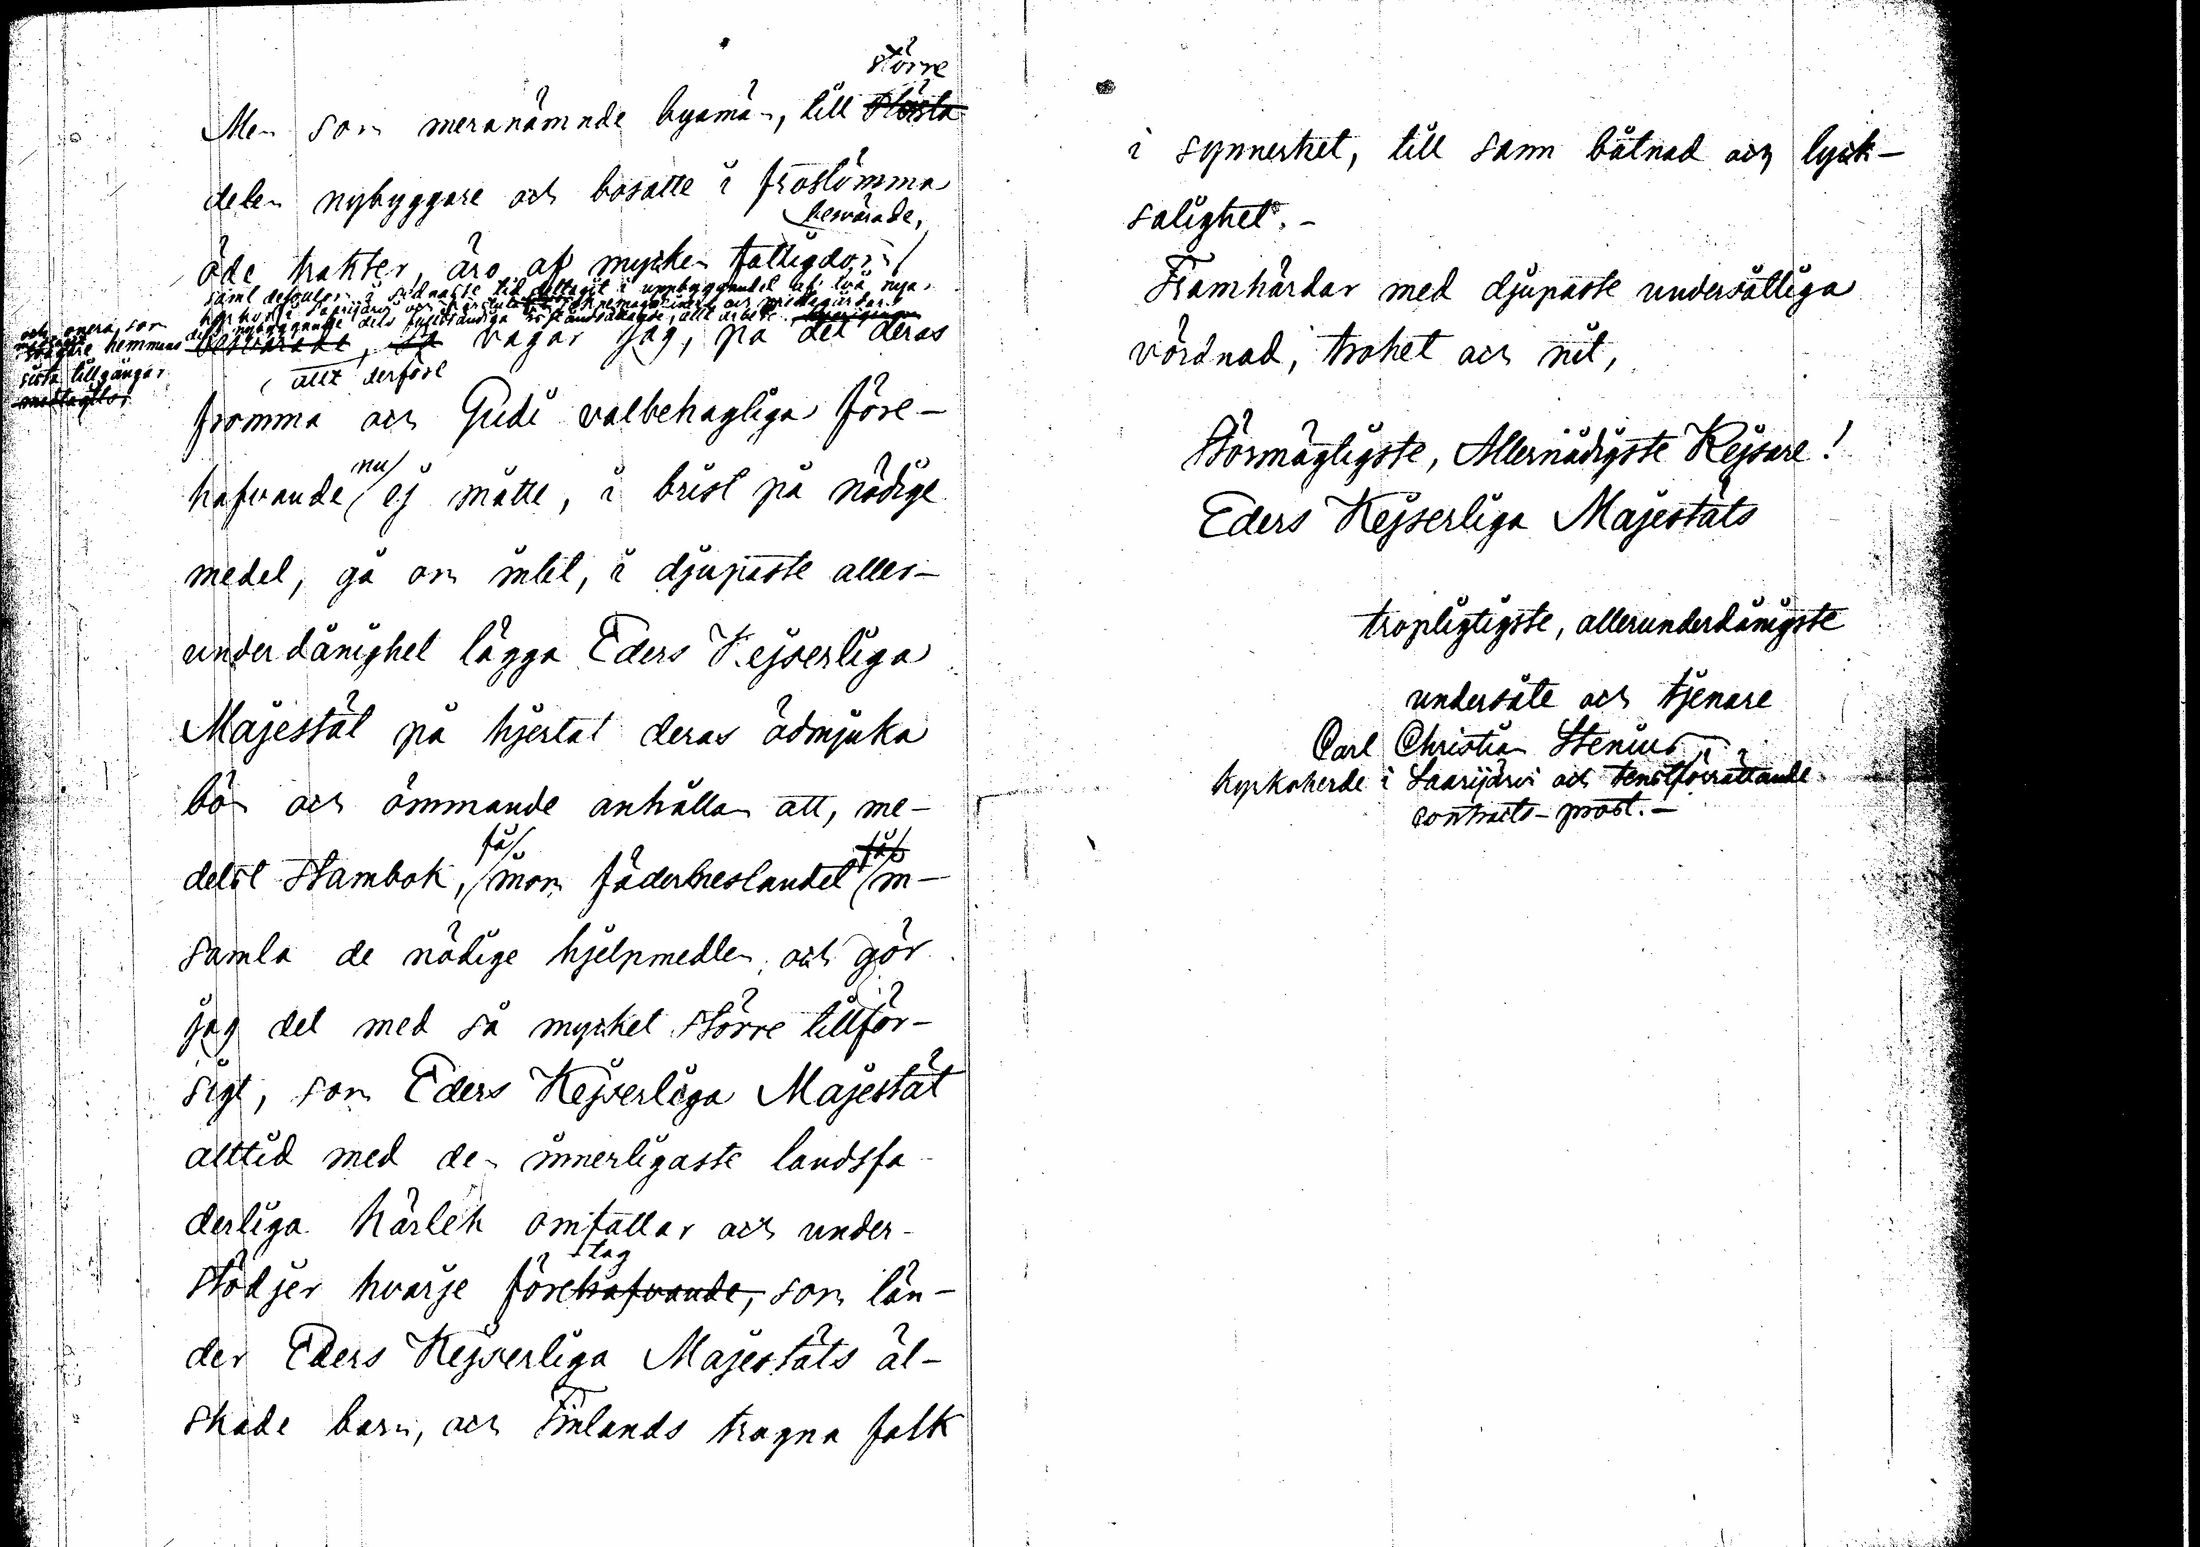 större
Men som meranämnde byamän, till största
delen nybyggare och bosatte i frostömma
besvärade,
öde trakter, äro af mycken fattigdom
samt dessutom i sednaste tid deltagit i uppbyggandet af två nya
och onera, som
hemmans
sista tillgångar
medtagits
besvärade, så vågar jag, på det deras
allt derföre
fromma och Gudi välbehagliga före-
nu
hafvande ej måtte, i brist på nödige
medel, gå om intet, i djupaste aller-
underdånighet lägga Eders Kejserliga
Majestät på hjertat deras ödmjuka
bön och ömmande anhållan att, me-
få
få
delst Stambok, inom fäderneslandet in-
samla de nödige hjelpmedlen, och gör
jag det med så mycket större tillför-
sigt, som Eders Kejserliga Majestät
alltid med den innerligaste landsfa-
derliga kärlek omfattar och under-
tag
stödjer hvarje förehafvande, som län-
der Eders Kejserliga Majestäts äl-
skade barn, och Finlands trogna folk
i synnerhet, till sann båtnad och lyck-
salighet. -
Framhärdar med djupaste undersåtliga
vördnad, trohet och nit,
Stormägtigste, Allernådigste Kejsare!
Eders Kejserliga Majestäts
tropligtigste, allerunderdånigste
undersåte och tjenare
Carl Christian Stenius
Kyrkoherde i Saarijärvi och tenstförrättande
contracts-prost. -